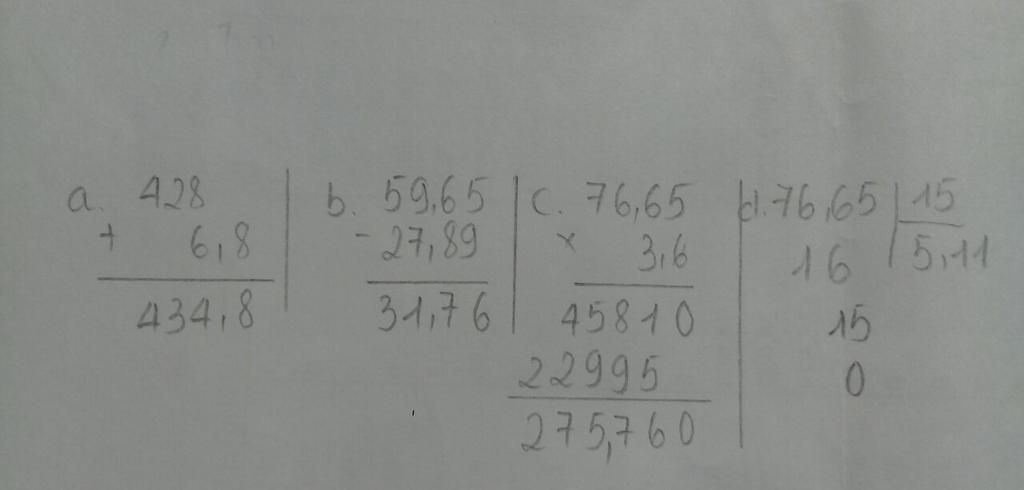 a. 428
+ 6,8
434,8
b. 59,65
- 27,89
31,76
c. 76,65
× 3,6
45810
22995
275,760
d. 76,65 15
16 5,11
15
0